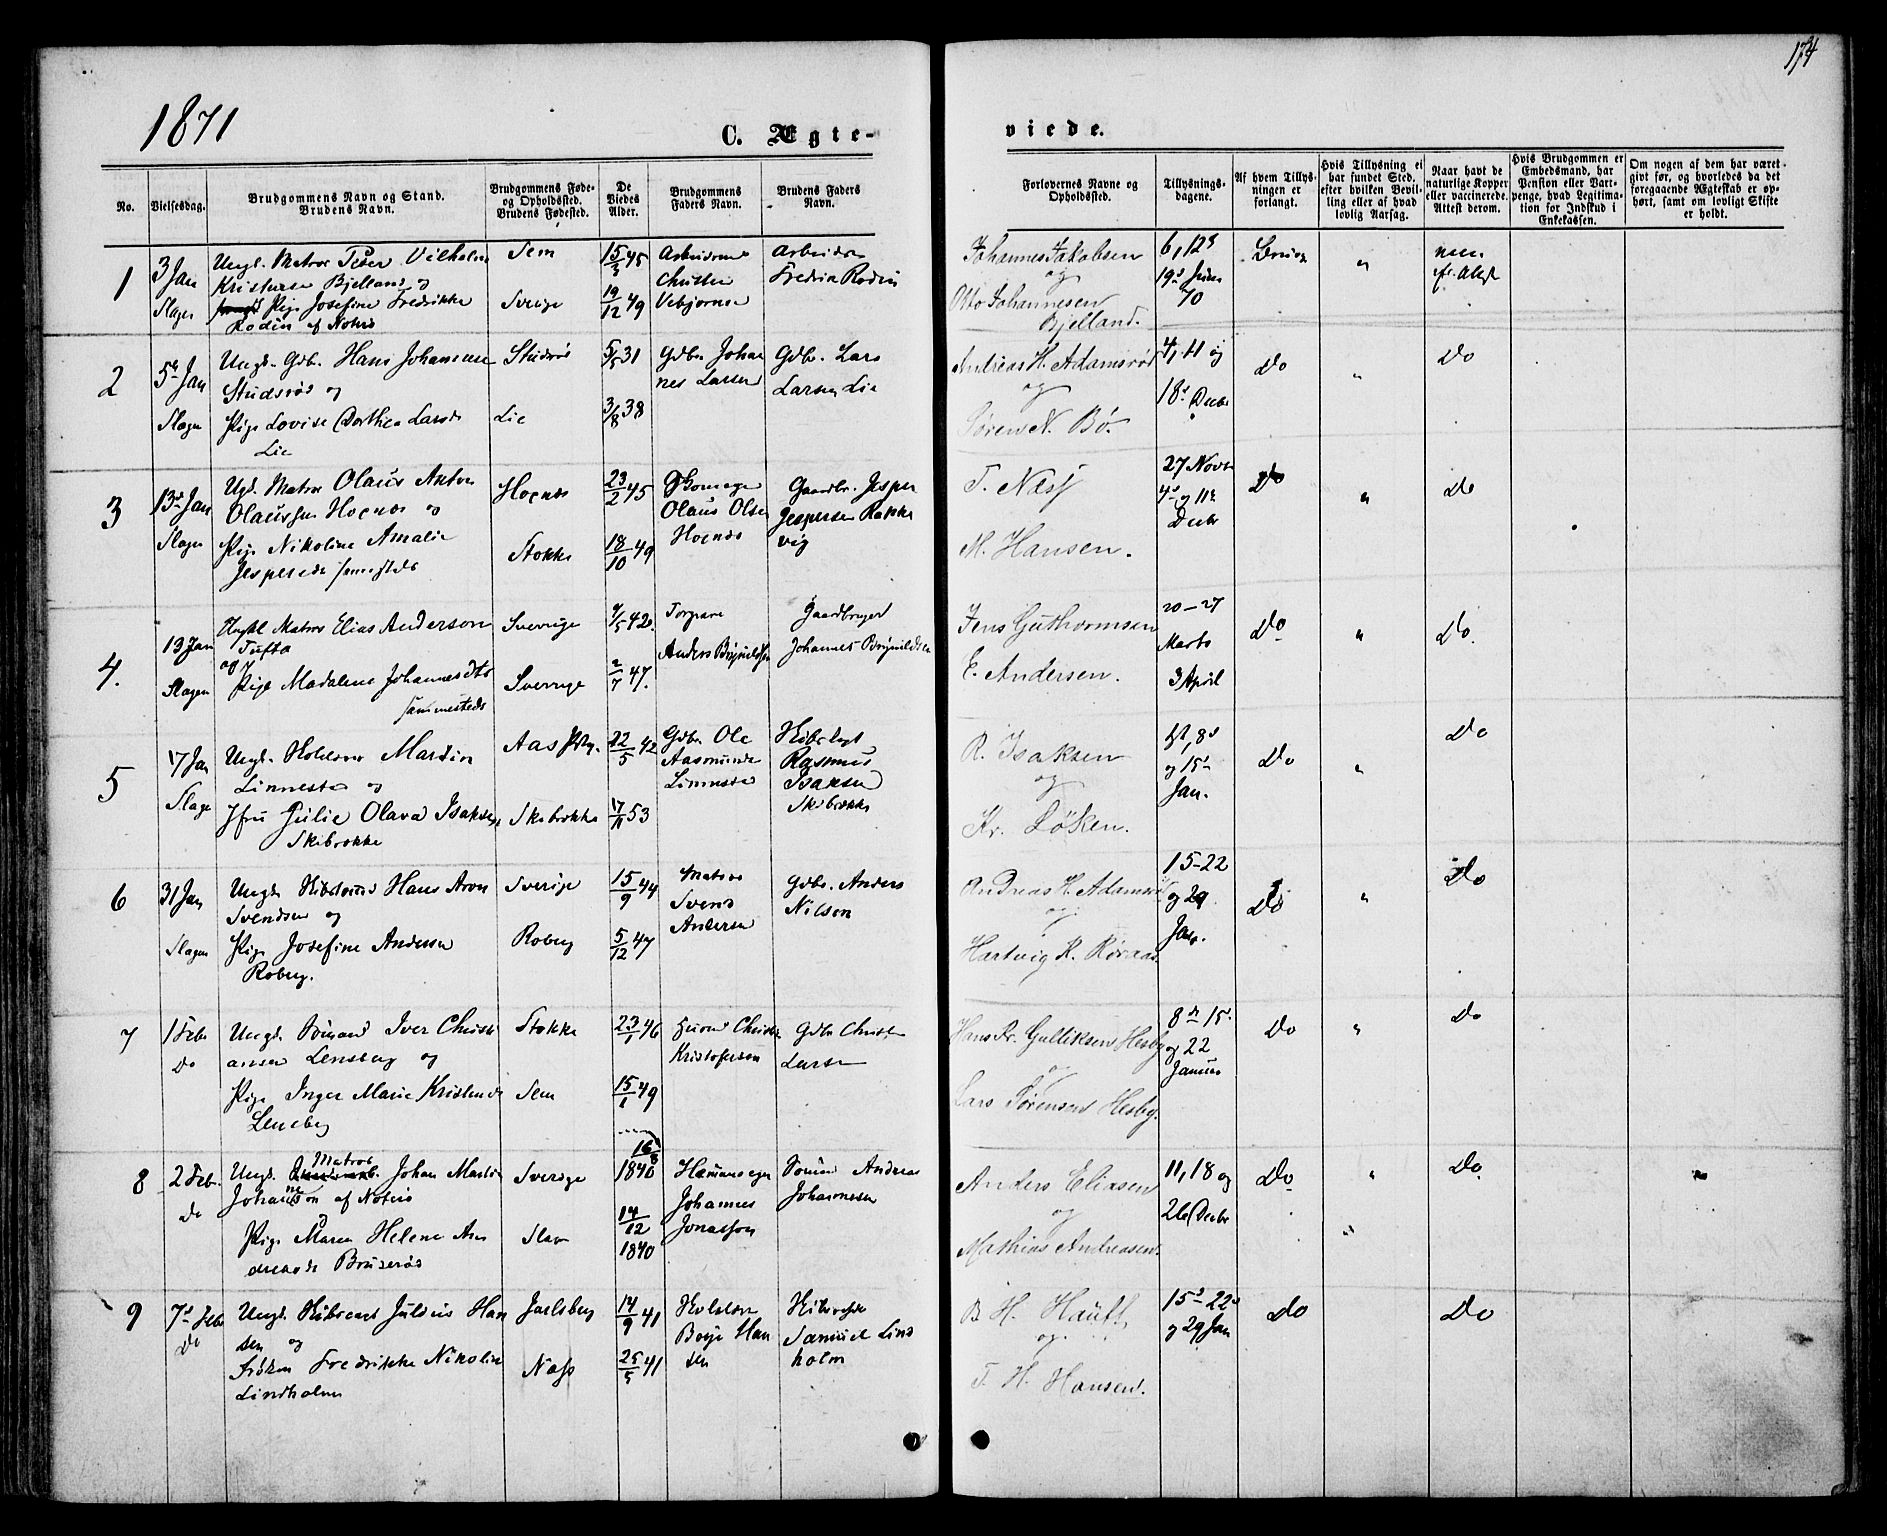 174
1871
C. Ægte-
viede.
No.
Vielsesdag.
Brudgommens Navn og Stand.
Brudens Navn.
Brudgommens Føde-
og Opholdssted.
Brudens Fødested.
De
Viedes
Alder.
Brudgommens
Faders Navn.
Brudens Faders
Navn.
Forlovernes Navne og
Opholdssted.
Tillysnings-
dagene.
Af hvem Tillys-
ningen er
forlangt.
Hvis Tillysning ei
har fundet Sted,
efter hvilken Bevil-
ling eller af hvad
lovlig Aarsag.
Naar havt de
naturlige Kopper
eller vaccinerede.
Attest derom.
Hvis Brudgommen er
Embedsmand, har
Pension eller Vart-
penge, hvad Legitima-
tion for Indskud i
Enkekassen.
Om nogen af dem har været
givt før, og hvorledes da det
foregaaende Ægteskab er op-
hørt, samt om lovligt Skifte
er holdt.
1
3 Jan
Slagen
Ungk. Matros Peter Vilhelm
Bjelland og
Pige Josefine Fredrikke
Rodin af Noterø
Sem
Sverige
15/3 45
19/12 49
Johannes Jakobsen
og
Otto Johannesen
Bjelland.
6, 12
19 Juni
70
"
2
5 Jan
Slagen
Ungk. Gdbr. Hans Johannesen
Studsrød og
Pige Lovise Dorthea Larsd
Lie
Studsrød
Lie
5/5 31
3/8 38
Gdbr. Johan
nes Larsen
Gdbr. Lars
Larsen Lie
Andreas H. Adamsrød
og
Søren N. Bø.
4, 11 og
18 Decbr
Do
"
Do
3
13 Jan
Slagen
Ugk. Matros Olaus Anton
Olaussen Hoenæs og
Pige Nikoline Amalie
Jespersdr sammesteds
Hoenæs
Stokke
23/2 45
18/10 49
Olaus Olsen
Hoenæs
Gaardbr. Jesper
Jespersen Rakke
vig
T. Næss
M. Hansen.
27 Novbr
4 og 11
Decbr
Do
"
Do
4.
13 Jan
Slagen
Ungkl Matros Elias Anderson
Tufto
og
Pige Madalene Johannesdtr
sammesteds
Sverrige
Sverrige
4/5 42.
2/7 47.
Torpare
Anders Brynildsen
Gaardbruger
Johannes Brynildsen
Jens Guthormsen
E. Andersen.
20 - 27
Marts
3 April
Do
"
Do.
5
17 Jan
Slagen
Ungk. Martin
Linnestad og
Jfru Julie Olava Isaksen
Skibrokke
Aas
Skibrokke
22/5 42
17/11 53
Gdbr. Ole
Aasmunds
Linnestad
Rasmus
Isaksen
Skibrokke
R. Isaksen
og
Kr. Løken.
1, 8
og 15
Jan.
Do
"
Do
6
31 Jan
Slagen
Ungk. Hans Aron
Svendsen og
Pige Josefine Andersen
Roberg.
Sverige
Roberg
15/9 44
5/12 47
Matros
Svend
Andersen
Gdbr. Anders
Nilson
Andreas H. Adamsrød
og
Hartvig R. Røraas.
15-22
og 29
Jan.
Do
"
Do
7
1 Febr
Do
Ungk. Sømand Iver Christi
ansen Lensberg og
Pige Inger Marie Kristensd
Lensberg
Stokke
Sem
23/1 46
15/1 49
Christen
Kristofersen
Gdbr. Christen
Larsen
Hans Kr. Gulliksen Hesby
og
Lars Sørensen Hesby.
8 15
og 22
Januar
Do
"
Do
8
2 Febr.
do
Matros
Ungk. Johan Martin
Johannson af Noterø
Pige Maren Helene An
dreasdr Bruserød
Sverige
16/8
1840
14/12
1840
Johannes
Jonasson
Sømand Andreas
Johannesen
Anders Eliasen
og
Mathias Andreasen.
11, 18 og
26 Decbr
Do
"
"
Do
9
7 Febr
do
Ungk. Julius Han
sen og
Frøken Fredrikke Nikoline
Lindholm
Jarlsberg
Næss
14/9 41
25/5 41
Boye Han
sen
Samuel Lind
holm
B. H. Hauff
og
T. H. Hansen.
15 22
og 29 Jan
Do
Do